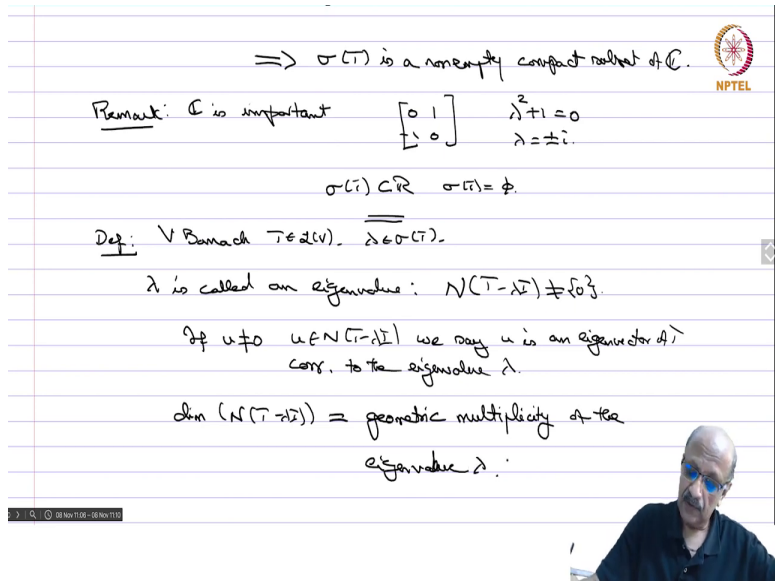 ⇒ σ(T) is a nonempty compact subset of ℂ.
NPTEL
Remark: ℂ is important [0 1; -1 0] λ²+1=0
λ=±i.
σ(T) ⊂ ℝ σ(T)= ϕ.
Def: V Banach T∈L(V). λ∈σ(T).
λ is called an eigenvalue: N(T-λI) ≠ {0}.
If u≠0 u∈N(T-λI) we say u is an eigenvector of T
corr. to the eigenvalue λ.
dim (N(T-λI)) = geometric multiplicity of the
eigenvalue λ.
08 Nov 11:06 – 08 Nov 11:10